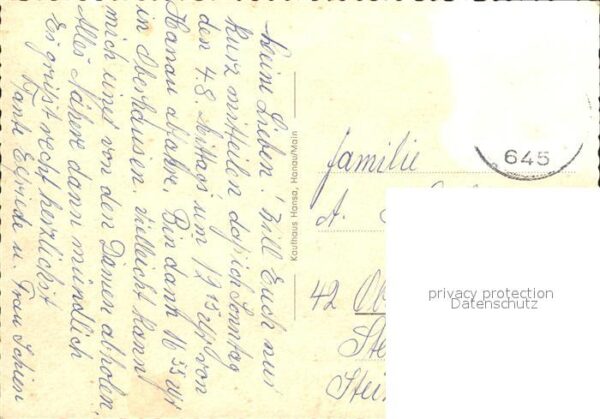 Meine Lieben! Will Euch nur
kurz mitteilen daß ich Sonntag
den 4.8. Mittags um 12 15 Uhr von
Hanau abfahre. Bin dann 16 55 Uhr
in Oberhausen. Vielleicht kann
mich eines von den Damen abholen.
Alles Nähere dann mündlich
Es grüst recht herzlichst
Tante Elfriede u. Frau
Kaufhaus Hansa, Hanau/Main
645
familie
A.
42 Ob
Ste
Stei
privacy protection
Datenschutz